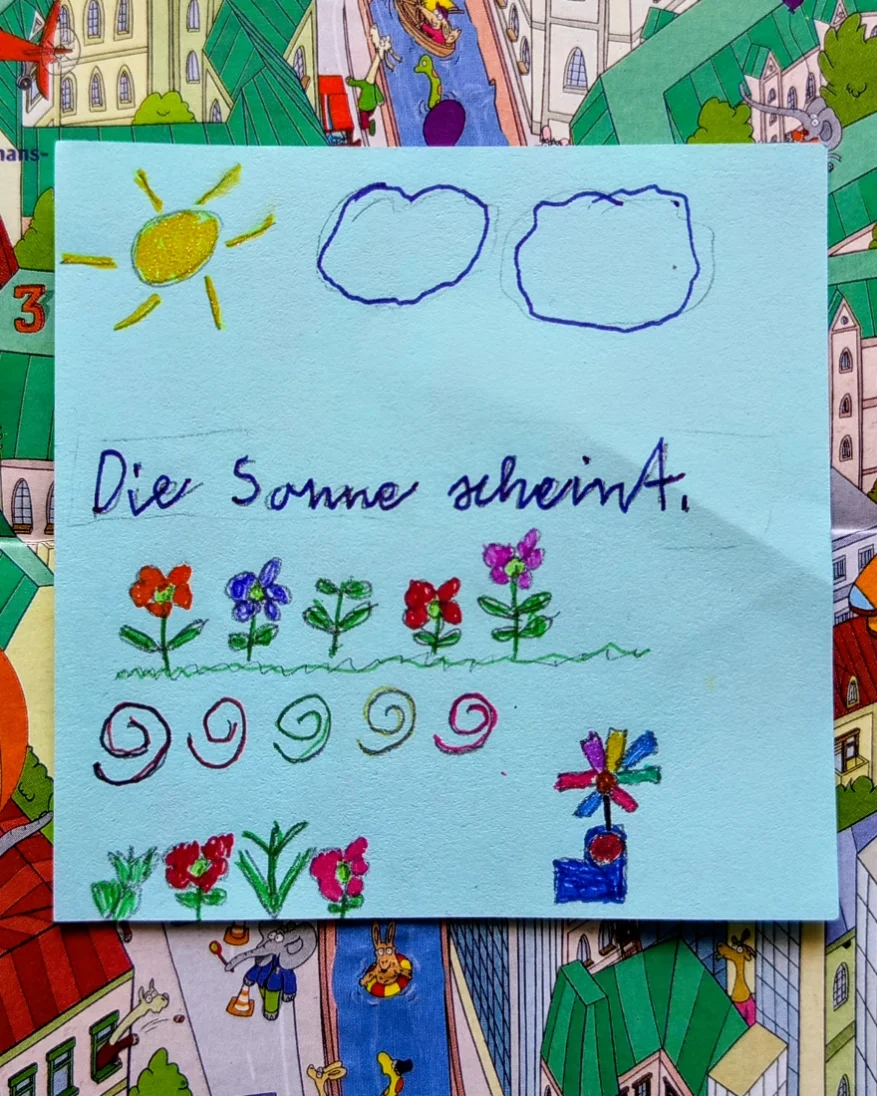 mans-
3
Die Sonne scheint.